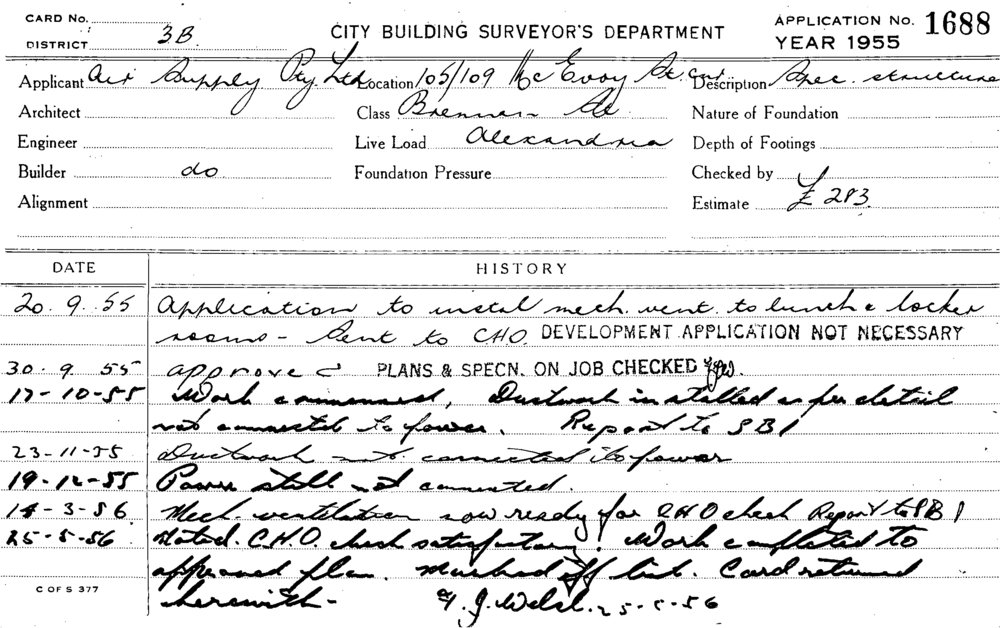 CARD No.
DISTRICT 3B.
CITY BUILDING SURVEYOR'S DEPARTMENT
APPLICATION No. 1688
YEAR 1955
Applicant Air Supply Pty. Ltd Location 105/109 McEvoy St. cnr Description Spec. structure
Architect Class Brennan St Nature of Foundation
Engineer Live Load Alexandria Depth of Footings
Builder do Foundation Pressure Checked by
Alignment Estimate £ 283.
DATE HISTORY
20. 9. 55 Application to instal mech. vent. to lunch & locker
rooms - Sent to CHO. DEVELOPMENT APPLICATION NOT NECESSARY
30. 9. 55 approved PLANS & SPECN. ON JOB CHECKED
17-10-55 Work commenced, Ductwork installed as per detail
not connected to power. Report to SBI
23-11-55 Ductwork not connected to power
19-12-55 Power still not connected.
14-3-56 Mech. ventilation now ready for CHO check Report to SBI
25-5-56 Noted. C.H.O. check satisfactory. Work completed to
approved plan. Marked off list. Card returned
herewith - J. Welsh. 25-5-56
C OF S 377